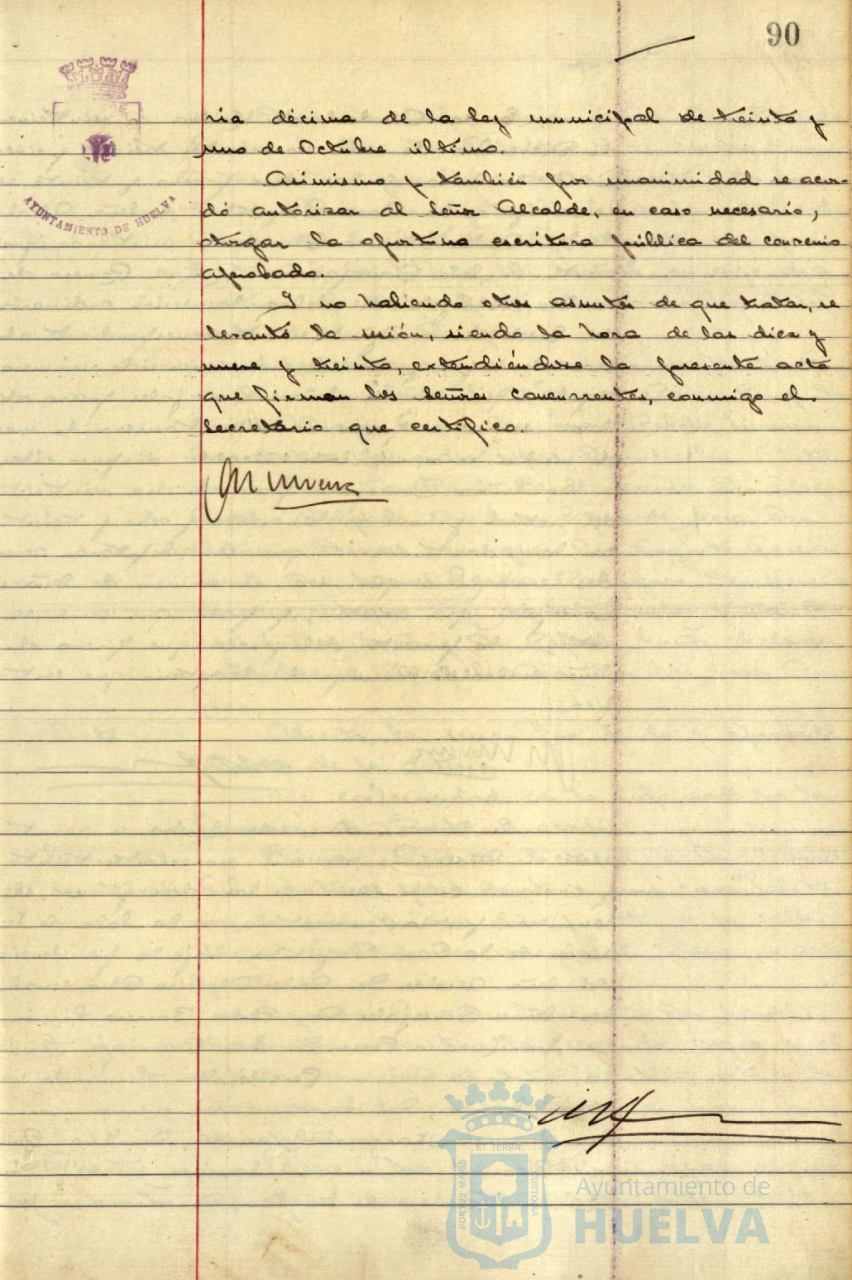 90
AYUNTAMIENTO DE HUELVA
ria décima de la ley municipal de treinta y
uno de Octubre último.
Asimismo y también por unanimidad se acor-
dó autorizar al Señor Alcalde, en caso necesario,
otorgar la oportuna escritura pública del convenio
aprobado.
Y no habiendo otros asuntos de que tratar, se
levantó la sesión, siendo la hora de las diez y
nueve y treinta, extendiéndose la presente acta
que firman los Señores concurrentes, conmigo el
Secretario que certifico.
ET TERRÆ
PORTUS MARIS
CUSTODIA
Ayuntamiento de
HUELVA